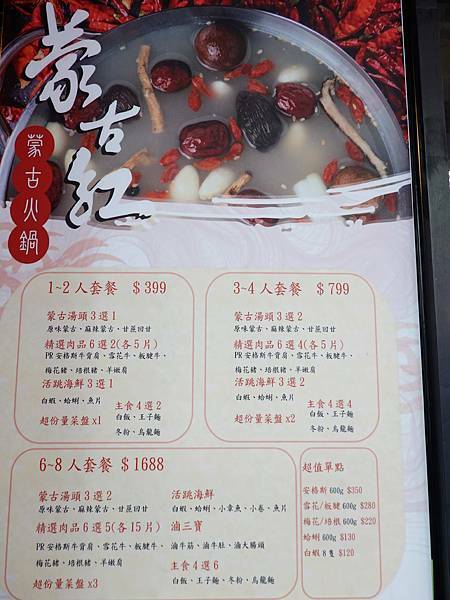 蒙古紅
蒙古火鍋
1~2 人套餐 $399
蒙古湯頭3選1
原味蒙古、麻辣蒙古、甘蔗回甘
精選肉品6選2(各5片)
PR安格斯牛背肩、雪花牛、板腱牛、
梅花豬、培根豬、羊嫩肩
活跳海鮮3選1
白蝦、蛤蜊、魚片
主食4選2
超份量菜盤x1
白飯、王子麵
冬粉、烏龍麵
3~4 人套餐 $799
蒙古湯頭3選2
原味蒙古、麻辣蒙古、甘蔗回甘
精選肉品6選4(各5片)
PR安格斯牛背肩、雪花牛、板腱牛、
梅花豬、培根豬、羊嫩肩
活跳海鮮3選2
白蝦、蛤蜊、魚片
主食4選4
超份量菜盤x2
白飯、王子麵
冬粉、烏龍麵
6~8 人套餐 $1688
蒙古湯頭3選2
原味蒙古、麻辣蒙古、甘蔗回甘
精選肉品6選5(各15片)
PR安格斯牛背肩、雪花牛、板腱牛、
梅花豬、培根豬、羊嫩肩
超份量菜盤x3
活跳海鮮
白蝦、蛤蜊、小章魚、小卷、魚片
滷三寶
滷牛筋、滷牛肚、滷大腸頭
主食4選6
白飯、王子麵、冬粉、烏龍麵
超值單點
安格斯 600g $350
雪花/板腱 600g $280
梅花/培根 600g $220
蛤蜊 600g $130
白蝦 8隻 $120